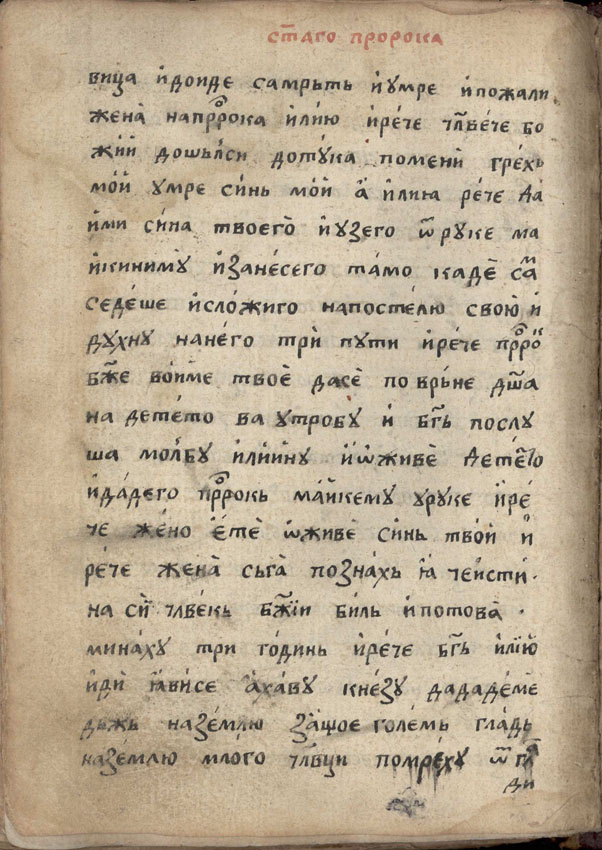 ст҃аго пророка
вица и҆ доиде самрьть и҆ умре и҆ пожали
жена̀ на прⷪ҇рока или́ю и҆ ре́че чл҃ве́че бо
жїй дошьлси до ту́ка помени гре́хь
мо́й умре си́нь мо́й а҆ и҆лию ре́че да
и҆ми си́на твоего̀ и҆ узего ѿ руке ма
и҆ки ниму̀ и҆ зане́се го та́мо кадѐ са
седе́ше и҆ сло́жи го на посте́лю свою̀ и҆
ду́хну на не́го три̏ пу́ти и҆ ре́че прⷪ҇ро
б҃же во и҆ме твоѐ да се̏ повръ́не дш҃а
на дете́то ва утро́бу и҆ бг҃ь послу
ша мо́лбу или́ину и҆ ѡ҆живе̏ дете́то
и҆ да́де го прⷪ҇рокь ма́йке му у руке и҆ ре́
че же́но е҆те̏ ѡ҆живе̏ си́нь тво́й и҆
ре́че жена̀ сьга̀ позна́хь ꙗ҆ че и҆сти
на сїй чл҃ве́кь б҃жїи би́ль и҆ по това̀
мина́ху три го́динь и҆ ре́че бг҃ь илїю̀
и҆ди̏ ꙗ҆ви се а҆ха́ву кне́зу да даде́ме
дъжь на зе́млю за́щое голе́мь гла́дь
на землю млого чл҃вци помре́ху ѿ гла
ди